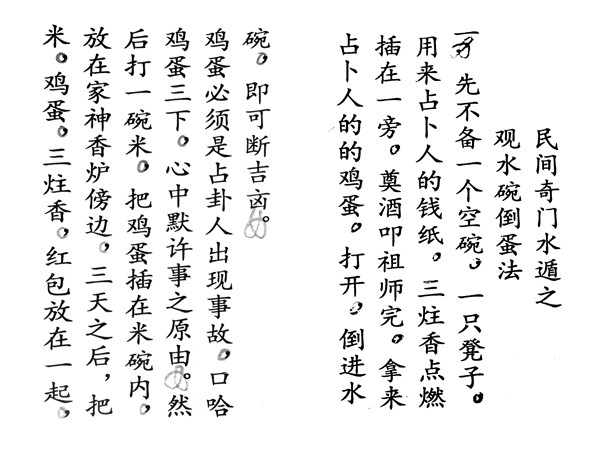 民间奇门水遁之
观水碗倒蛋法
先不备一个空碗。一只凳子。
用来占卜人的钱纸。三炷香点燃
插在一旁。奠酒叩祖师完。拿来
占卜人的的鸡蛋。打开。倒进水
碗。即可断吉凶。
鸡蛋必须是占卦人出现事故。口哈
鸡蛋三下。心中默许事之原由。然
后打一碗米。把鸡蛋插在米碗内,
放在家神香炉傍边。三天之后,把
米。鸡蛋。三炷香。红包放在一起。